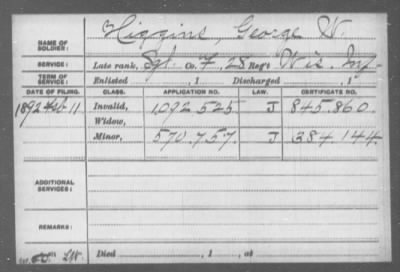 NAME OF SOLDIER: Higgins, George W.
SERVICE: Late rank, Sgt. Co. F, 28 Reg't Wis. Inf.
TERM OF SERVICE: Enlisted , 1 Discharged , 1
DATE OF FILING. CLASS. APPLICATION NO. LAW. CERTIFICATE NO.
1892 Feb 11 Invalid, 1,092.525 J 845.860.
Widow,
Minor, 570.757. J 384.144.
ADDITIONAL SERVICES:
REMARKS:
Died , 1 , at